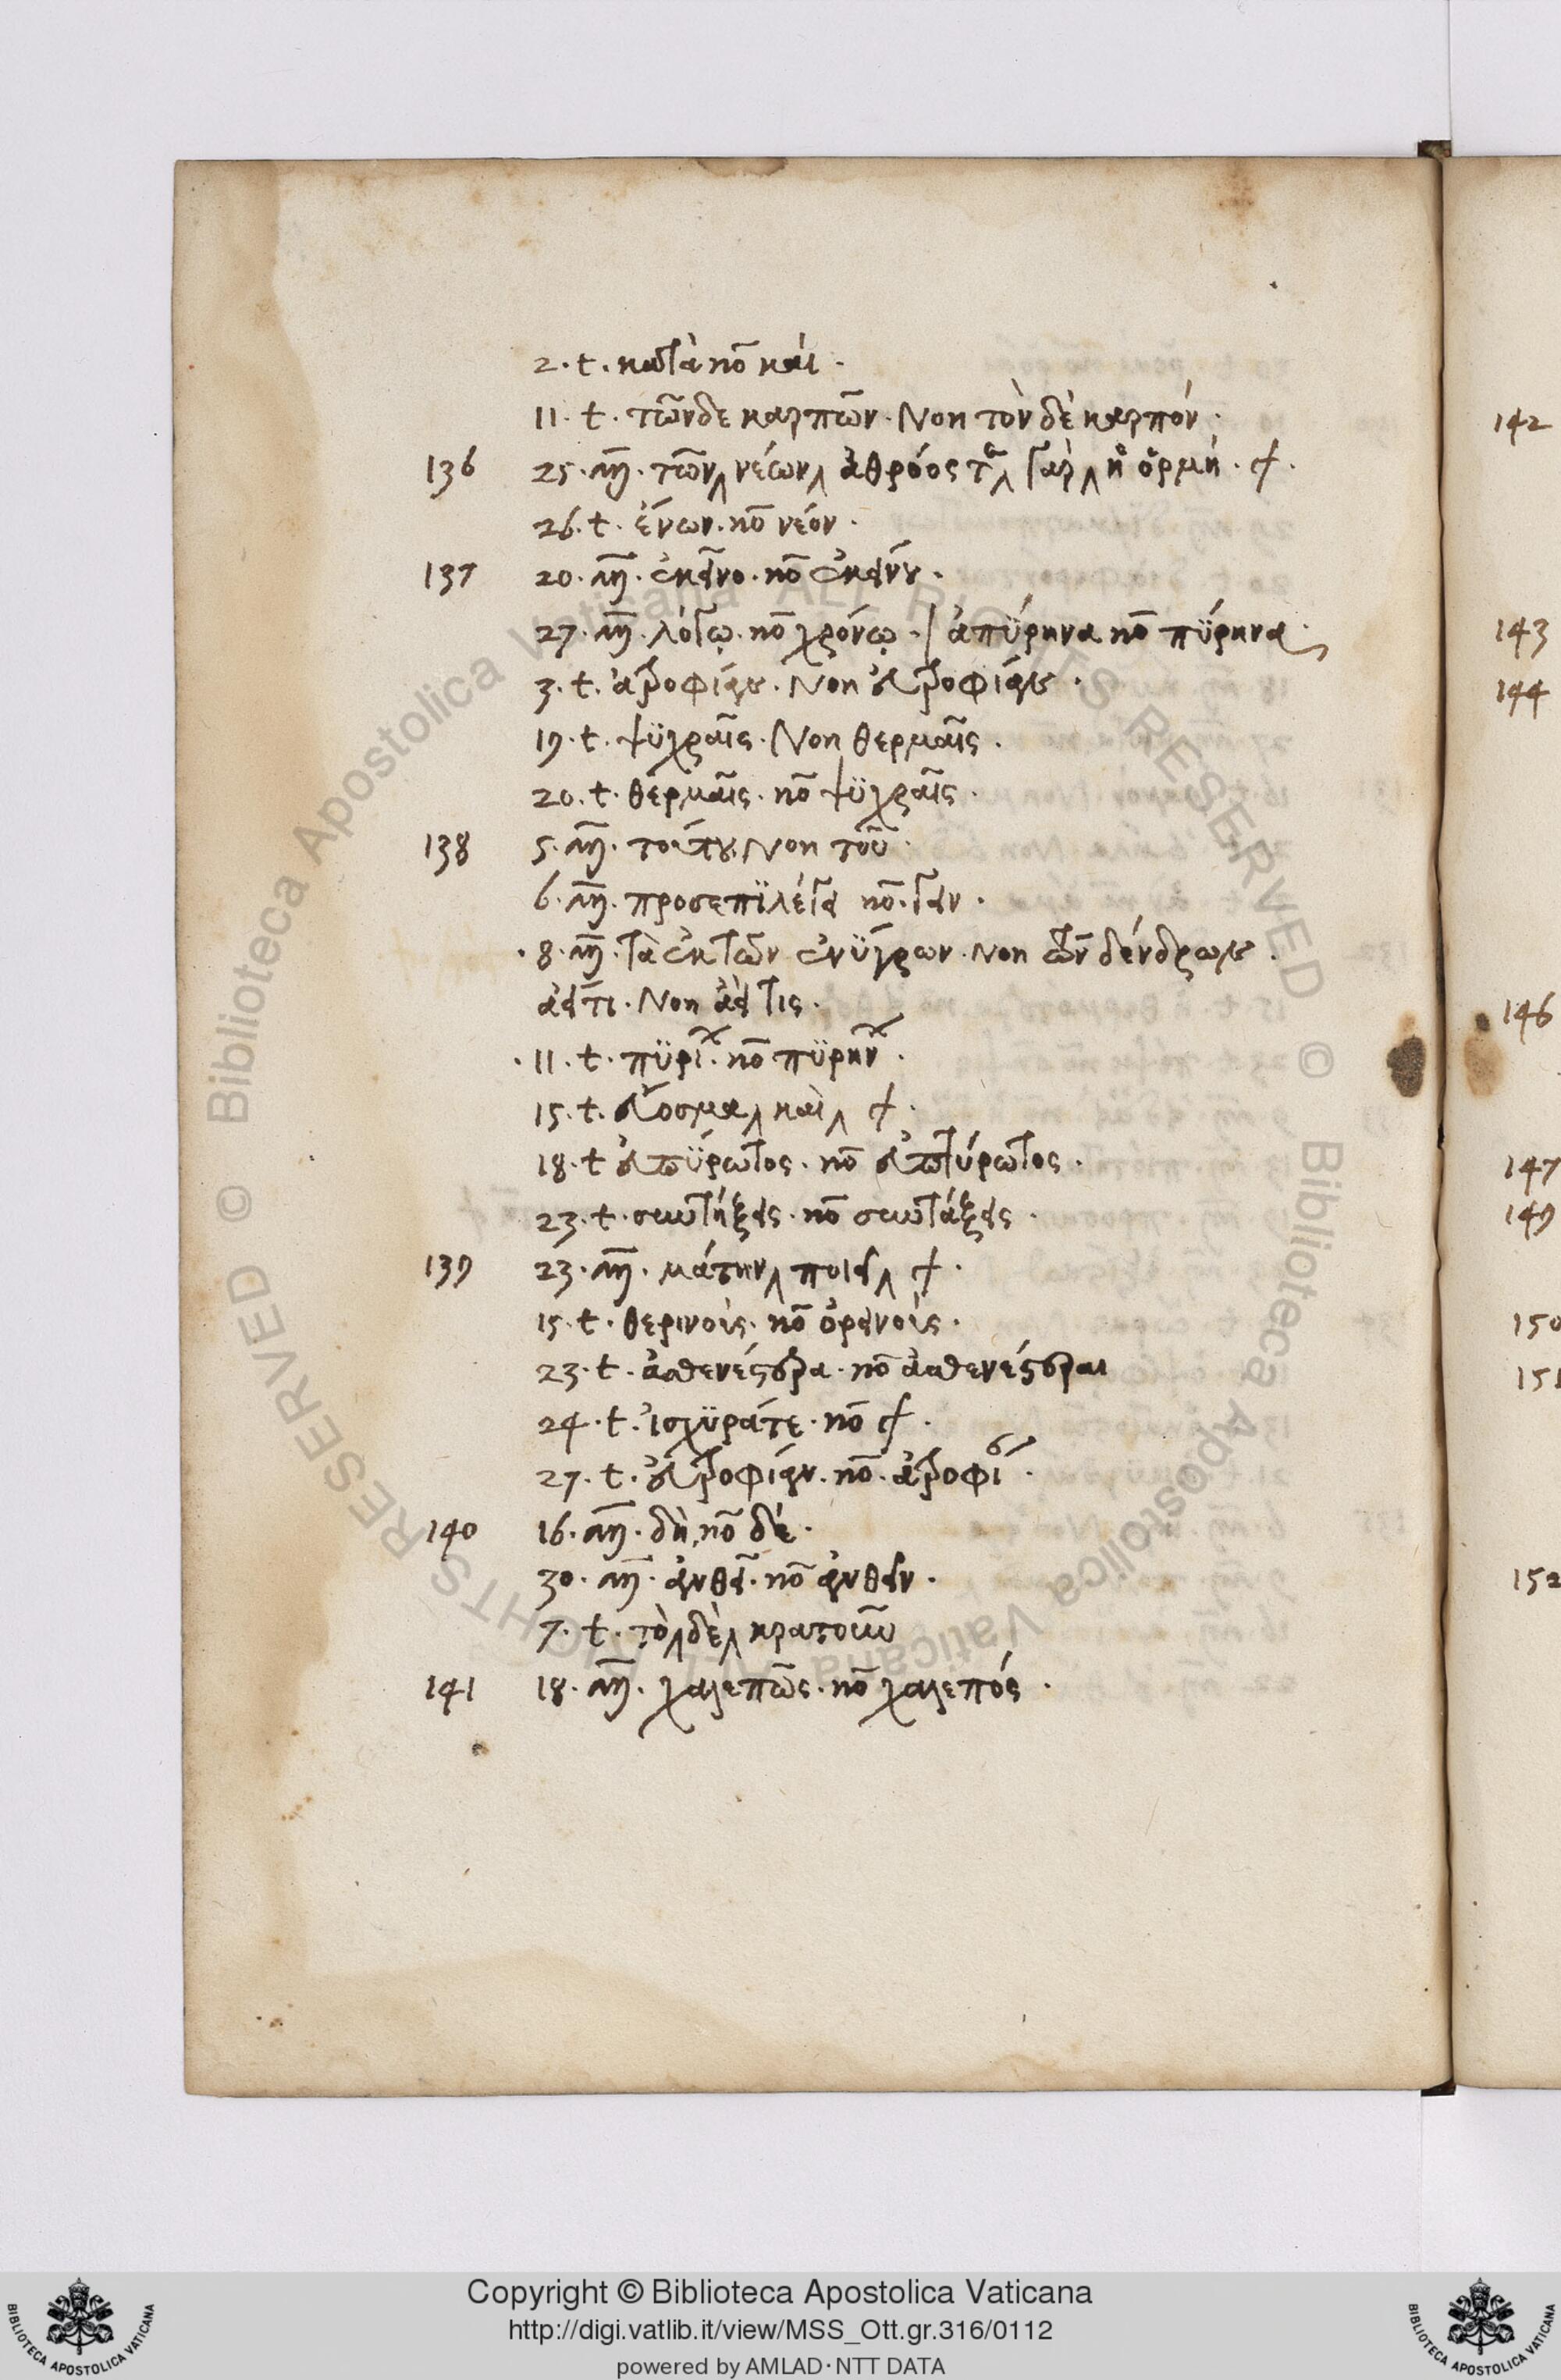 2. t. κατὰ nō καί.
11. t. τῶνδε καρπῶν. Non τὸν δὲ καρπόν.
136 25. m̄. τῶν νέων ἀθρόος γὰρ ἡ ὁρμή.
26. t. ἔνων. nō νέον.
137 20. m̄. ἐκεῖνο. nō ἐκείνου.
27. m̄. λόγῳ. nō χρόνῳ. / ἀπύρηνα nō πύρηνα
3. t. ἀτροφίας. Non
19. t. ψυχραῖς. Non θερμαῖς.
20. t. θερμαῖς. nō ψυχραῖς.
138 5. m̄. τούτου. Non τοῦ
6. m̄. προσεπιλέγει nō. γειν.
8. m̄. τὰ ἐκ τῶν ἐνύγρων. Non δένδρων.
ἀεί τι. Non ἀεί τις.
11. t. πυρι. nō πυρην.
15. t. καὶ
18. t. nō
23. t. συντήξεις. nō συντάξεις.
139 23. m̄. μάτην ποιεῖ
15. t. θερινοῖς. nō ὀρεινοῖς.
23. t. ἀσθενέστερα. nō ἀσθενέστεραι
24. t. ἰσχυρά τε. nō
27. t. nō. ἀτροφι
140 16. m̄. δὴ, nō δέ.
30. m̄. ἀνθεῖ. nō ἀνθεῖν.
7. t. τὸ δὲ κρατοῦν
141 18. m̄. χαλεπῶς. nō χαλεπός.
142
143
144
146
147
149
150
151
152
Copyright © Biblioteca Apostolica Vaticana
http://digi.vatlib.it/view/MSS_Ott.gr.316/0112
powered by AMLAD·NTT DATA